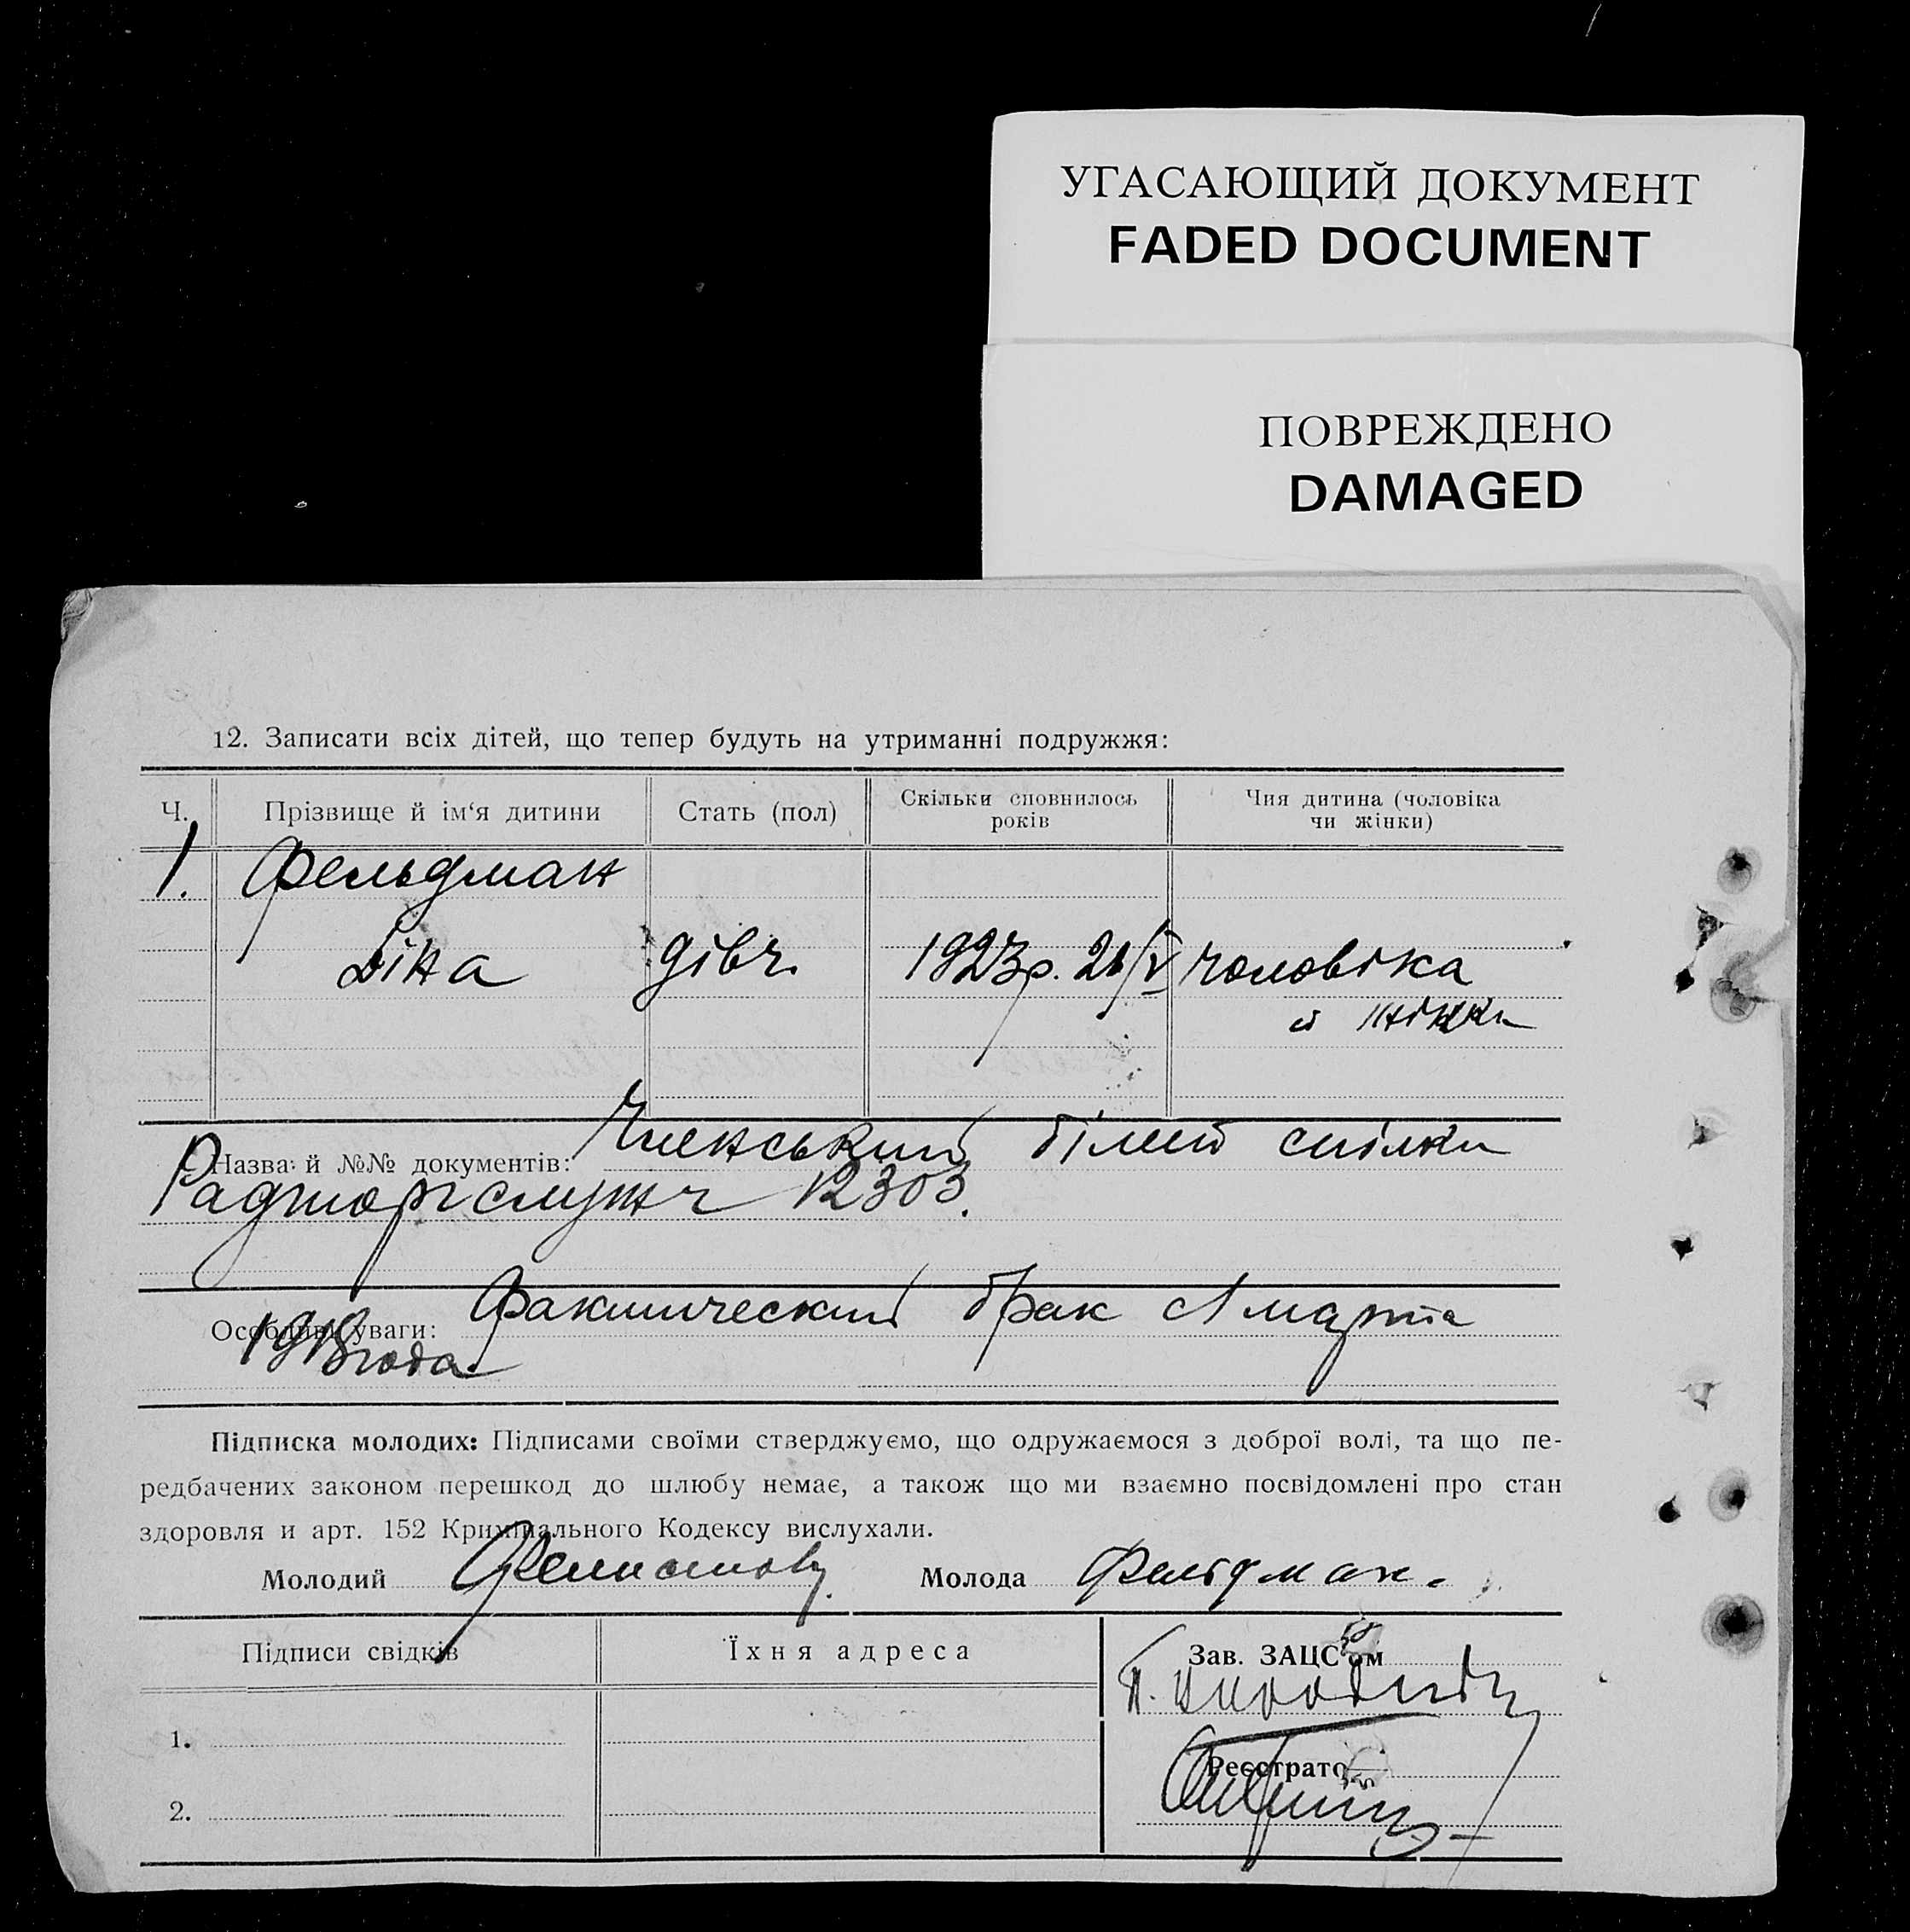 УГАСАЮЩИЙ ДОКУМЕНТ
FADED DOCUMENT
ПОВРЕЖДЕНО
DAMAGED
12. Записати всіх дітей, що тепер будуть на утриманні подружжя:
Ч. Прізвище й ім‘я дитини Стать (пол) Скільки сповнилось років Чия дитина (чоловіка чи жінки)
1. Фельдман
Діна дівч. 1923р. 21/V чоловіка
й жінки
Назва й №№ документів: Членський білет спілки
Радторгслужч 12303.
Особливі уваги: Фактический брак с 1 марта
1918 года
Підписка молодих: Підписами своїми стверджуємо, що одружаємося з доброї волі, та що пе-
редбачених законом перешкод до шлюбу немає, а також що ми взаємно посвідомлені про стан
здоровля и арт. 152 Кримінального Кодексу вислухали.
Молодий Молода Фельдман.
Підписи свідків Їхня адреса Зав. ЗАЦС'ом
1.
Реєстратор
2.